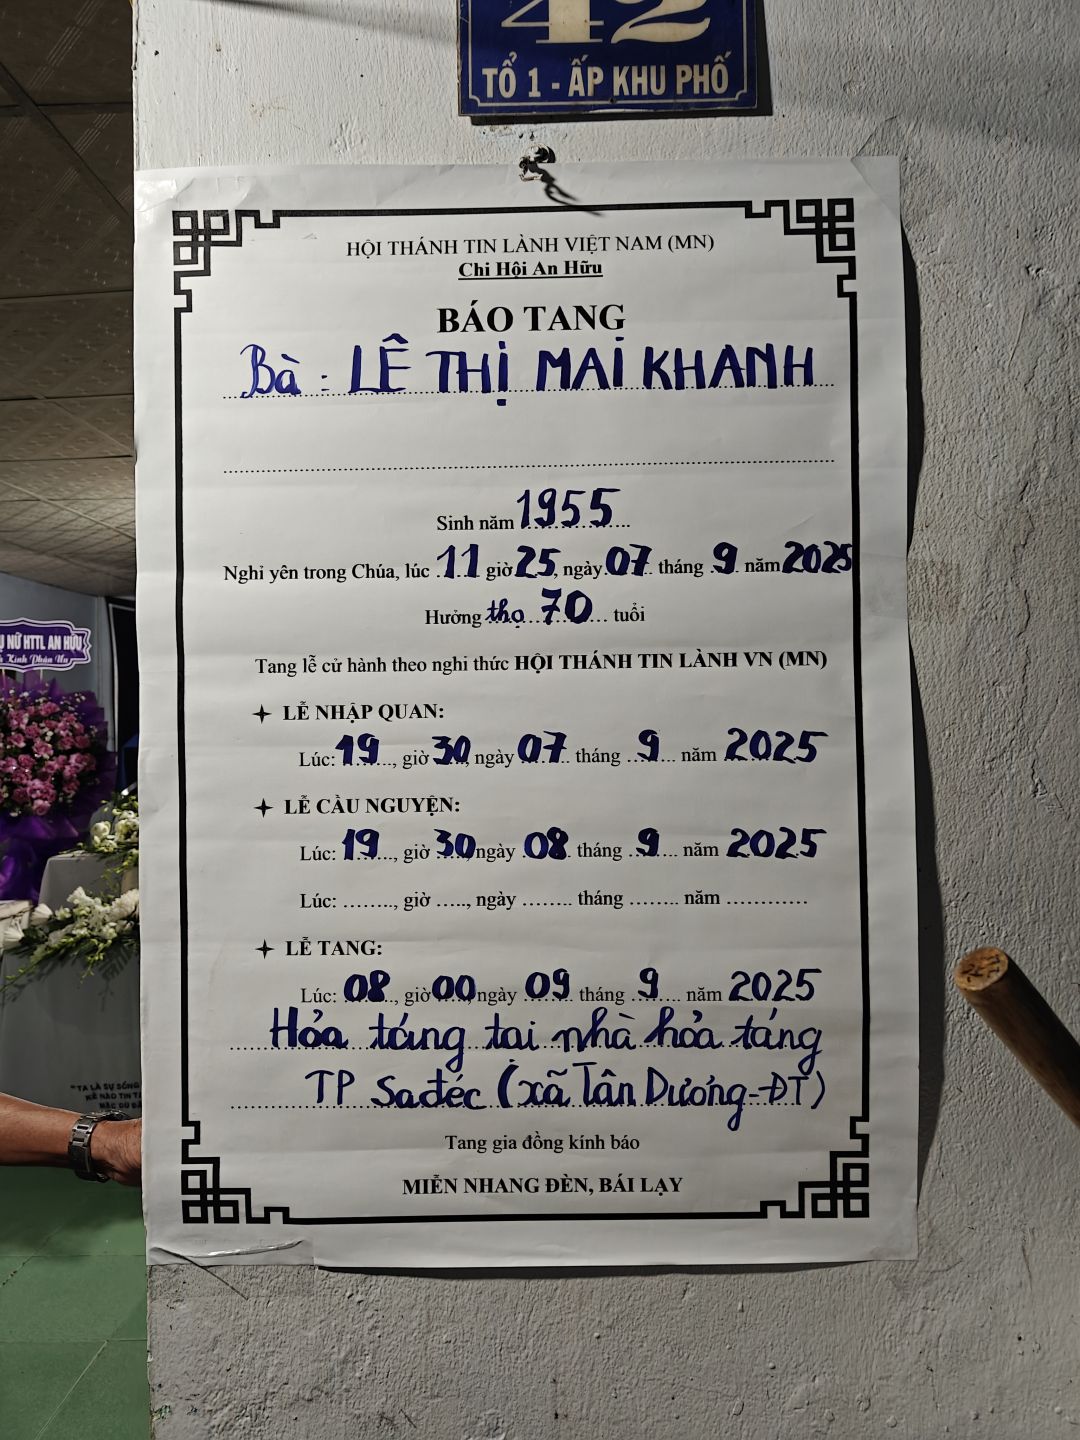 42
TỔ 1 - ẤP KHU PHỐ
HỘI THÁNH TIN LÀNH VIỆT NAM (MN)
Chi Hội An Hữu
BÁO TANG
Bà : LÊ THỊ MAI KHANH
Sinh năm 1955
Nghỉ yên trong Chúa, lúc 11 giờ 25, ngày 07 tháng 9 năm 2025
Hưởng thọ 70 tuổi
Tang lễ cử hành theo nghi thức HỘI THÁNH TIN LÀNH VN (MN)
LỄ NHẬP QUAN:
Lúc: 19, giờ 30, ngày 07 tháng 9 năm 2025
LỄ CẦU NGUYỆN:
Lúc: 19, giờ 30, ngày 08 tháng 9 năm 2025
Lúc: ........, giờ ....., ngày ........ tháng ........ năm ............
LỄ TANG:
Lúc: 08, giờ 00, ngày 09 tháng 9 năm 2025
Hỏa táng tại nhà hỏa táng
TP Sađéc (xã Tân Dương-ĐT)
Tang gia đồng kính báo
MIỄN NHANG ĐÈN, BÁI LẠY
NỮ HTTL AN HỮU
Kính Phân Ưu
"TA LÀ SỰ SỐNG
KẺ NÀO TIN TA
MẶC DÙ ĐÃ